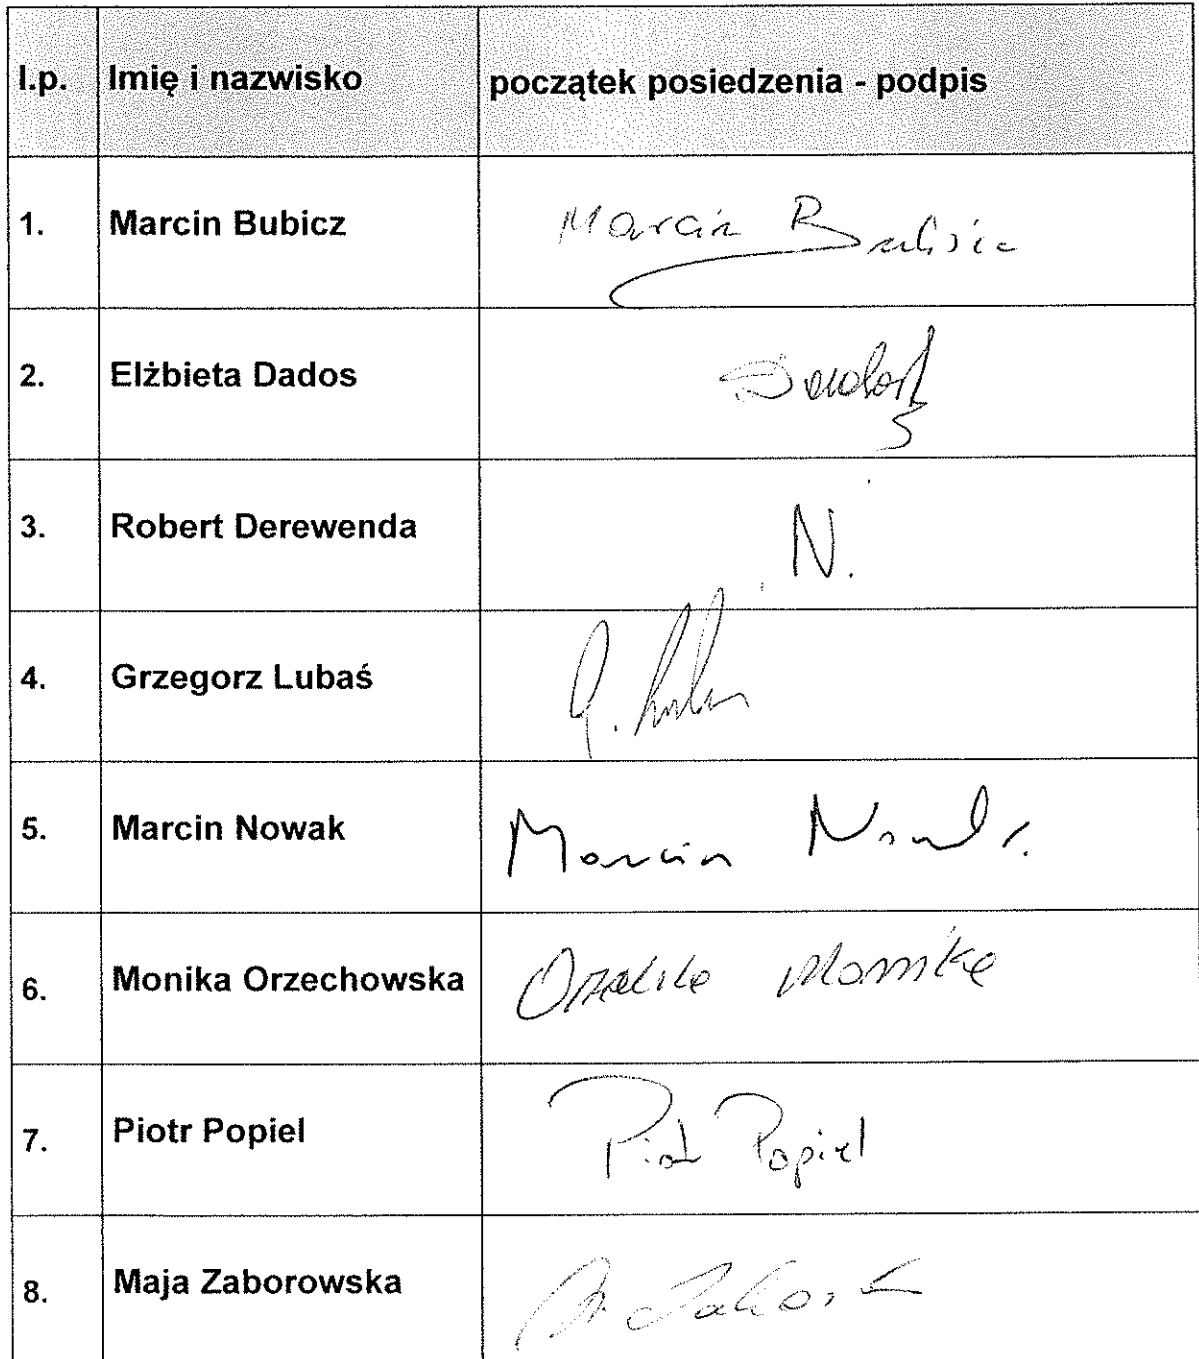 l.p. Imię i nazwisko początek posiedzenia - podpis
1. Marcin Bubicz Marcin Bubicz
2. Elżbieta Dados Dados
3. Robert Derewenda N.
4. Grzegorz Lubaś G. Lubaś
5. Marcin Nowak Marcin Nowak
6. Monika Orzechowska Monika
7. Piotr Popiel Piotr Popiel
8. Maja Zaborowska